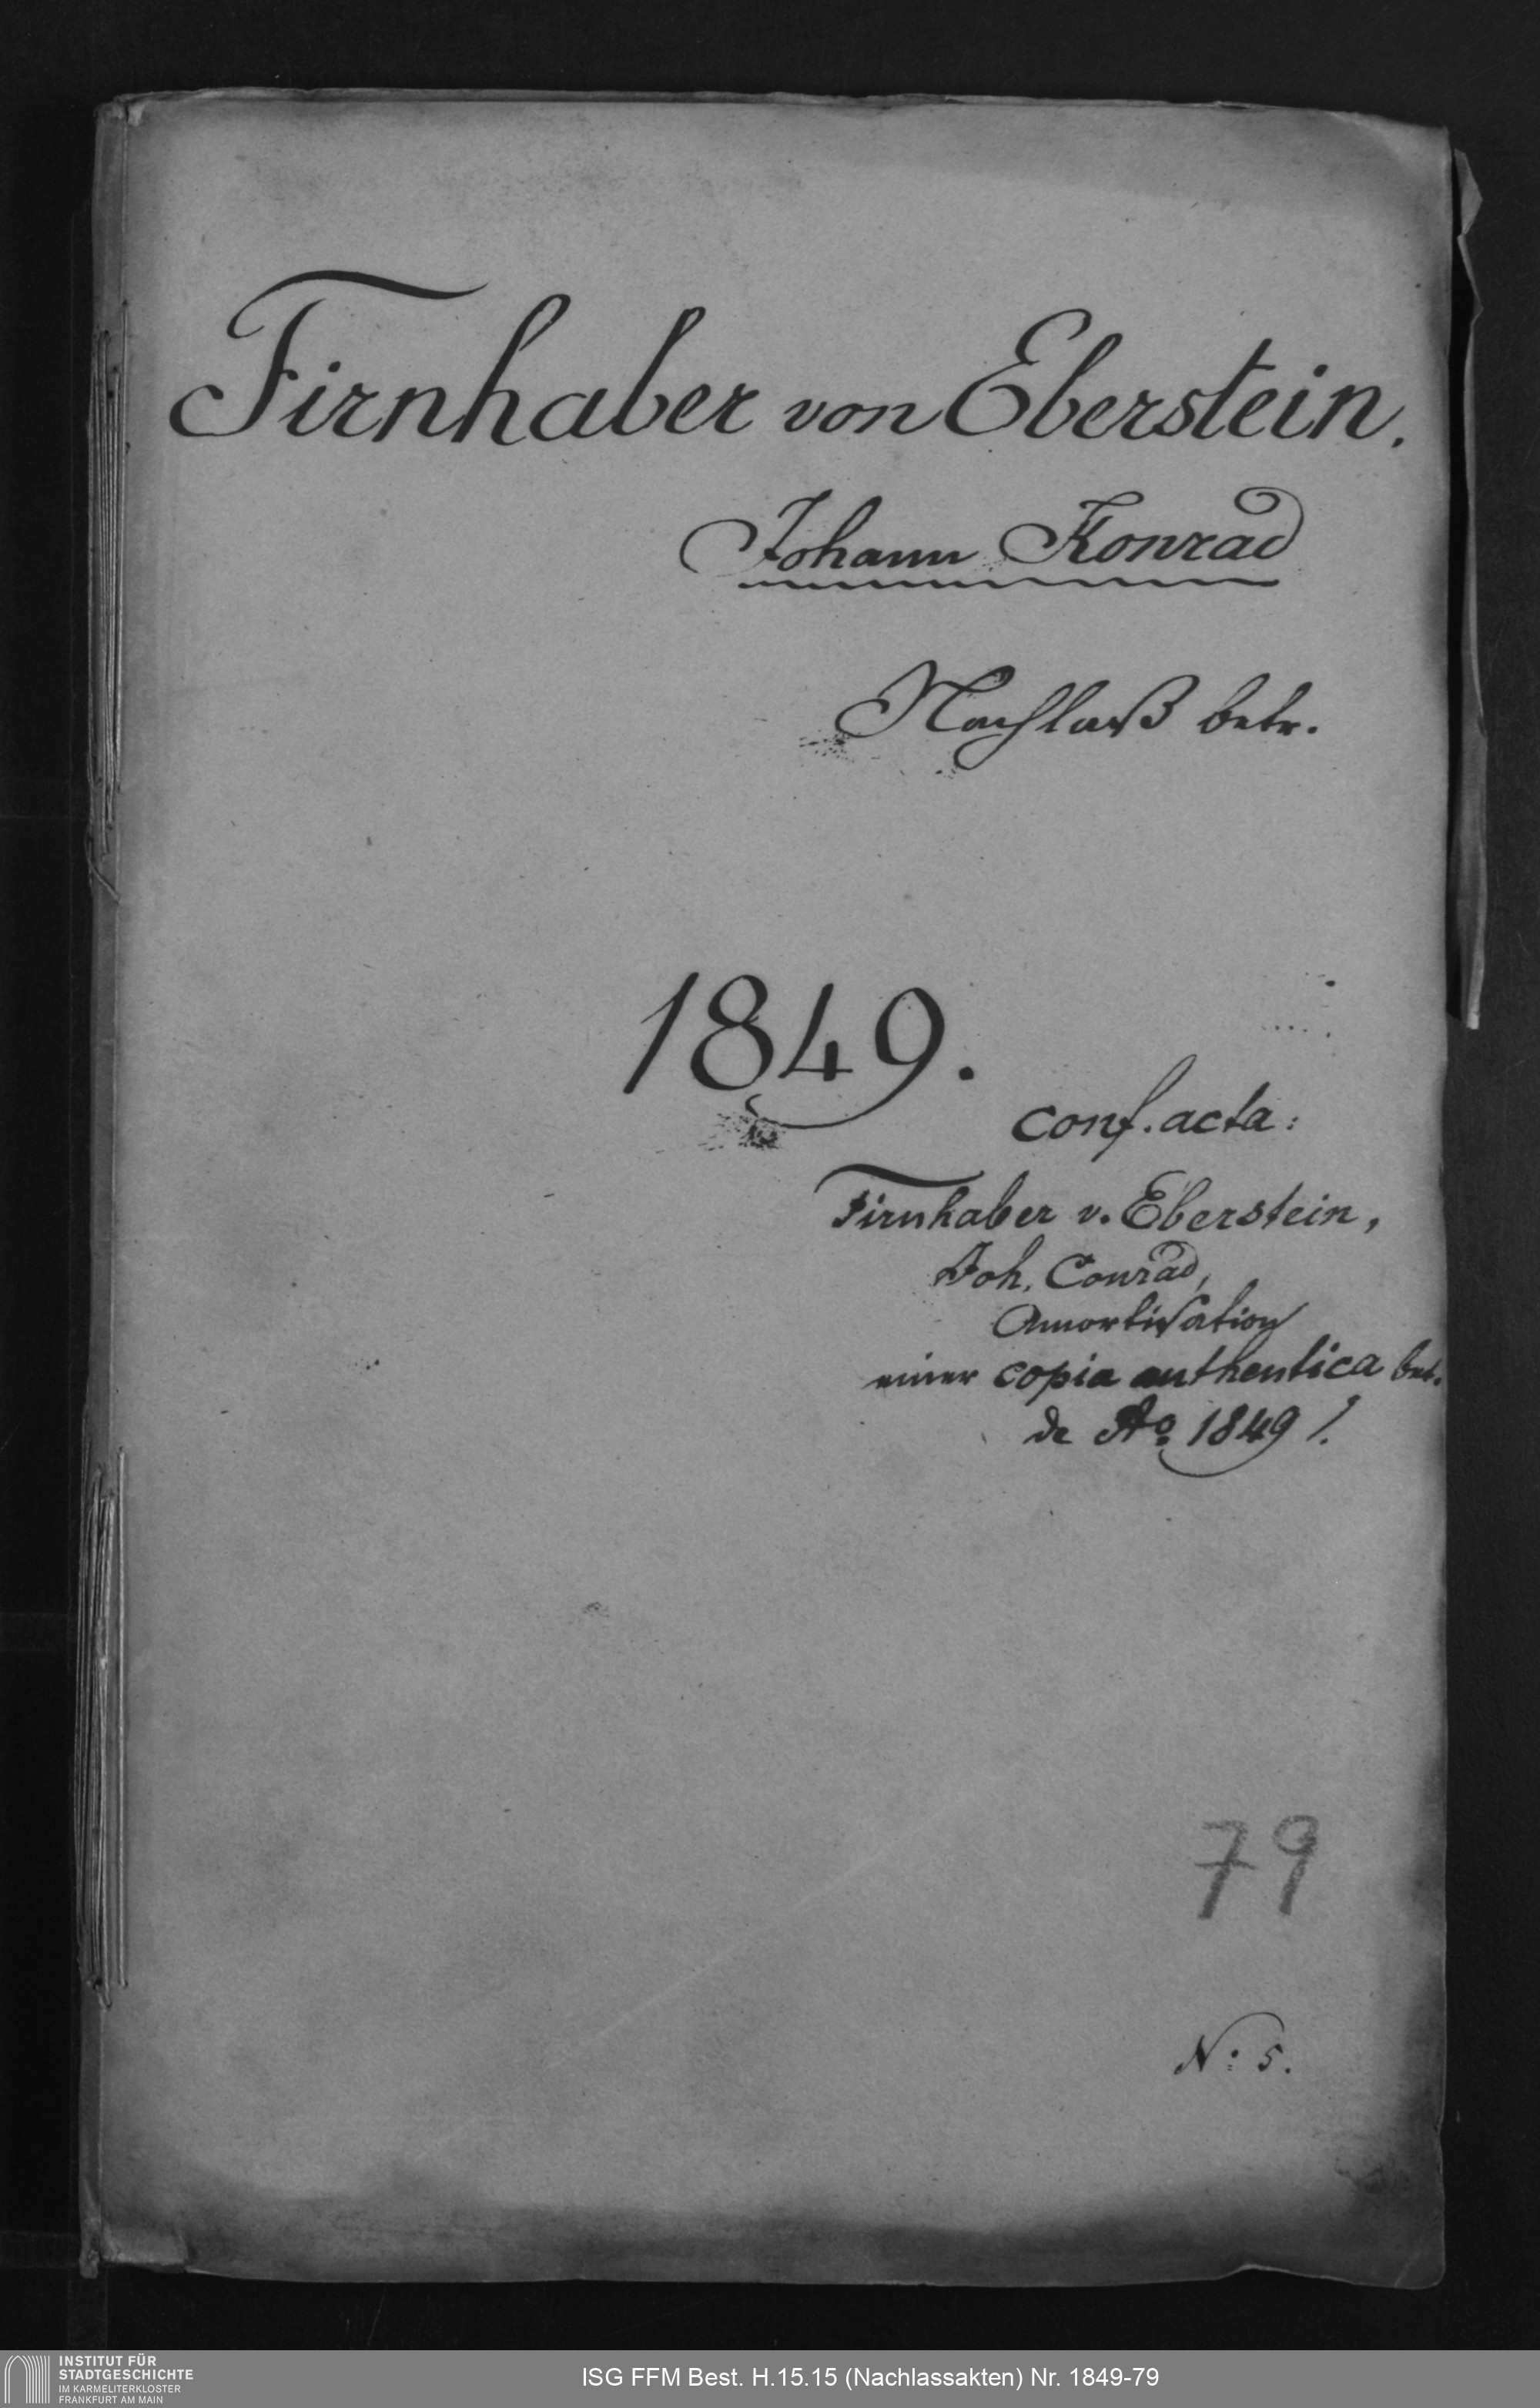 Firnhaber von Eberstein.
Johann Konrad
Nachlaß betr.
1849.
conf. acta:
Firnhaber v. Eberstein,
Joh. Conrad,
Amortisation
einer copia authentica bet.
de Ao. 1849 /.
79
N: 5.
INSTITUT FÜR
STADTGESCHICHTE
IM KARMELITERKLOSTER
FRANKFURT AM MAIN
ISG FFM Best. H.15.15 (Nachlassakten) Nr. 1849-79